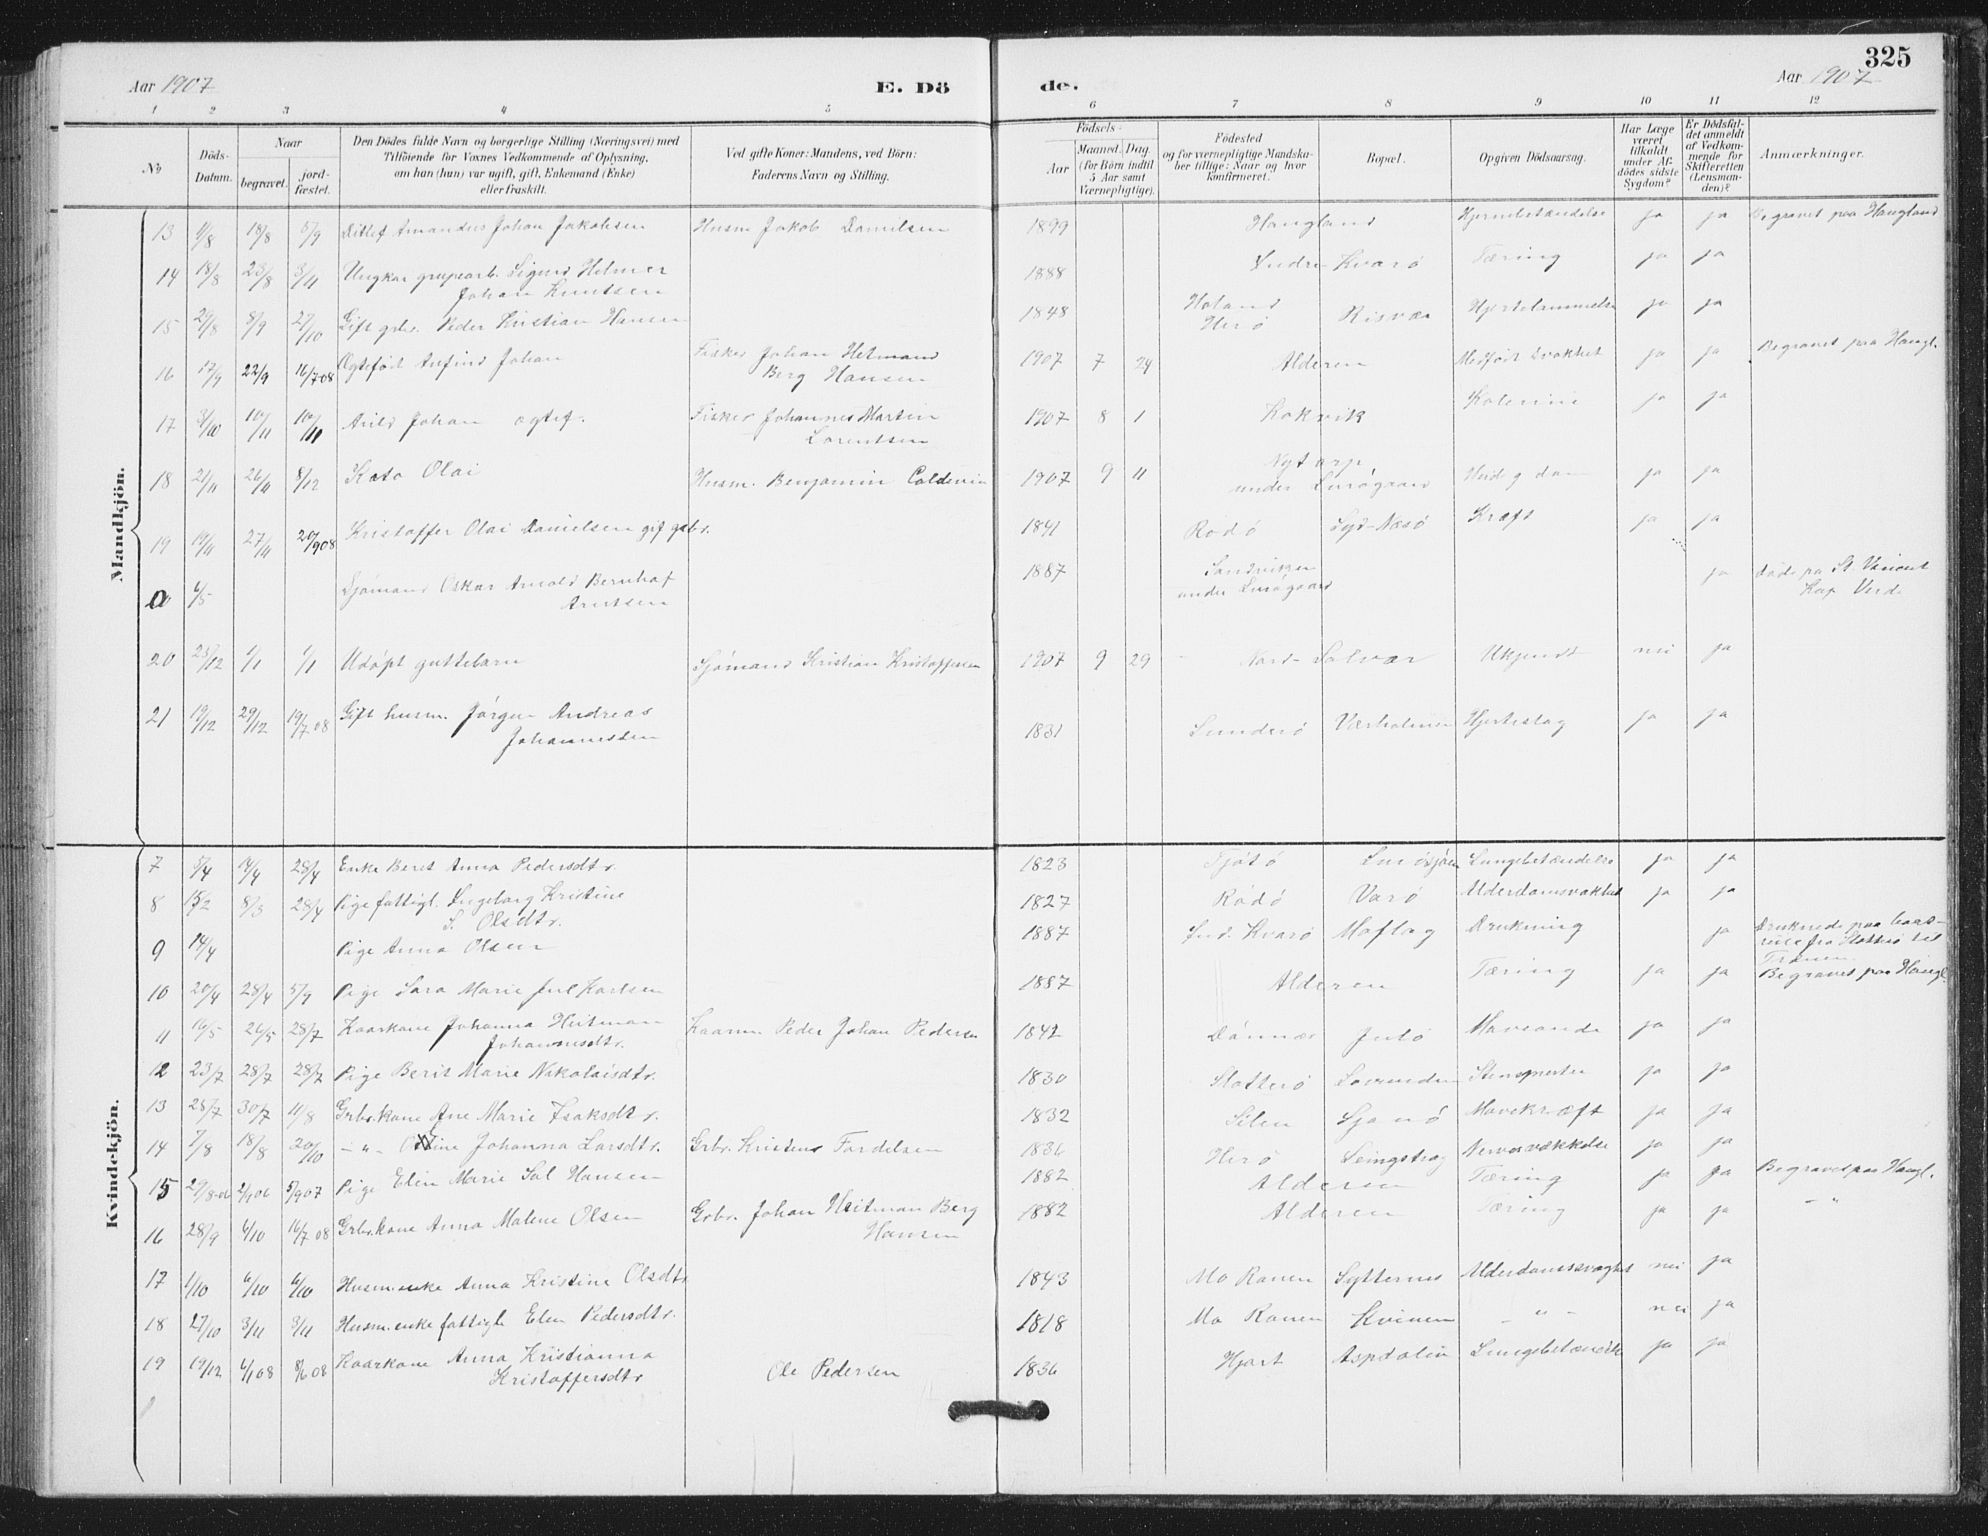 325
Aar 1907 E. Dö de. Aar 1907
1 2 3 4 5 6 7 8 9 10 11 12
No Döds-Datum. Naar begravet. jord-fæstet. Den Dödes fulde Navn og borgerlige Stilling (Næringsvei) med Tilföiende for Voxnes Vedkommende af Oplysning, om han (hun) var ugift, gift, Enkemand (Enke) eller fraskilt. Ved gifte Koner: Mandens, ved Börn: Faderens Navn og Stilling. Födsels- Aar Maaned. Dag. (for Börn indtil 5 Aar samt Værnepligtige). Födested og for værnepligtige Mandska-ber tillige: Naar og hvor konfirmeret. Bopæl. Opgiven Dödsaarsag. Har Læge været tilkaldt under Af-dödes sidste Sygdom? Er Dödsfal-det anmeldt af Vedkom-mende for Skifteretten (Lensman-den)? Anmærkninger.
Mandkjön.
13 4/8 18/8 5/9 Ditlef Amandus Johan Jakobsen Husm Jakob Danielsen 1899 Haugland Hjernebetændelse ja ja Begravet paa Haugland
14 18/8 23/8 3/11 Ungkar grupearb. Sigurd Helmer 1888 Indre Kvarö Tæring ja ja
Johan Knutsen
15 21/8 8/9 27/10 Gift grbr. Peder Kristian Hansen 1848 Heröy Risvær Hjertelammelse ja ja
16 17/9 22/9 16/7 08 Ægtefödt Arfind Johan Fisker Johan Hetmand 1907 7 24 Alderen Medfödt Svakhet ja ja Begravet paa Haugl.
Berg Hansen
17 3/10 10/11 10/11 Arild Johan ægtef. Fisker Johannes Martin 1907 8 1 Kokvik Kolerine ja ja
Lorentsen
18 21/11 26/11 8/12 Kato Olai Husm. Benjamin Coldevin 1907 9 11 Nytorp ja ja
under Luröygaard
19 19/11 27/11 20/9 08 Kristoffer Olai Danielsen gif gabr. 1841 Rödö Syd-Næsö Kræft ja ja
a 6/5 Sjömand Oskar Arnold Bernhof 1887 Sandviken ja Döde paa St Vincent
Arntsen under Luröygaard Kap Verde
20 23/12 1/1 1/1 Udöpt guttebarn Sjömand Kristian Kristoffersen 1907 9 29 Nord-Solvær Ukjendt nei ja
21 19/12 29/12 19/7 08 Gift husm. Jörgen Andreas 1831 Sunderö Værholmen Hjerteslag ja ja
Johannessen
Kvindekjön.
7 5/4 14/4 28/4 Enke Beret Anna Pedersdtr. 1823 Tjötö Lurösjöen Lungebetændelse ja ja
8 15/2 8/3 28/4 Pige fattigl. Ingeborg Kristine 1827 Rödö Varö Alderdomsvakhet ja ja
S. Olsdtr.
9 14/4 Pige Anna Olsen 1887 Ind. Kvarö Moflag Drukning ja Druknede paa baad-
reise fra Slotterö til
Trænen
10 20/4 28/4 5/9 Pige Sara Marie Jul Karlsen 1887 Alderen Tæring ja ja Begravet paa Haugl.
11 16/5 26/5 28/7 Kaarkone Johanna Heitman Kaarm. Peder Johan Pedersen 1842 Dönnæs ja ja
Johannesdtr.
12 23/7 28/7 28/7 Pige Berit Marie Nikolaisdtr. 1830 Slotterö Lovunden ja ja
13 25/7 30/7 11/8 Grbr.kone Ane Marie Isaksdtr. 1832 Selen Sjonö Mavekræft ja ja
14 7/8 18/8 20/10 -"- Oline Johanna Larsdtr. Grbr. Kristens Tordelsen 1836 Herö Leingstrag Nervesvækkelse ja ja
15 29/8-06 2/9 06 5/9 07 Pige Elen Marie Sol Hansen 1882 Alderen Tæring ja ja Begravet paa Haugl.
16 28/9 6/10 16/7 08 Grbr.kone Anna Malene Olsen Grbr. Johan Heitman Berg 1882 Alderen Tæring ja ja -"
Hansen
17 1/10 6/10 6/10 Husm.enke Anna Kristine Olsdtr 1843 Mo Ranen Sytternes Alderdomssvaghet nei ja
18 27/10 3/11 3/11 Husm.enke fattigl. Elen Pedersdtr. 1818 Mo Ranen Kvinen -"- nei ja
19 19/12 6/1 08 8/6 08 Kaarkone Anna Kristianna 1836 Hjart Aspdalen ja ja
Kristoffersdtr Ole Pedersen